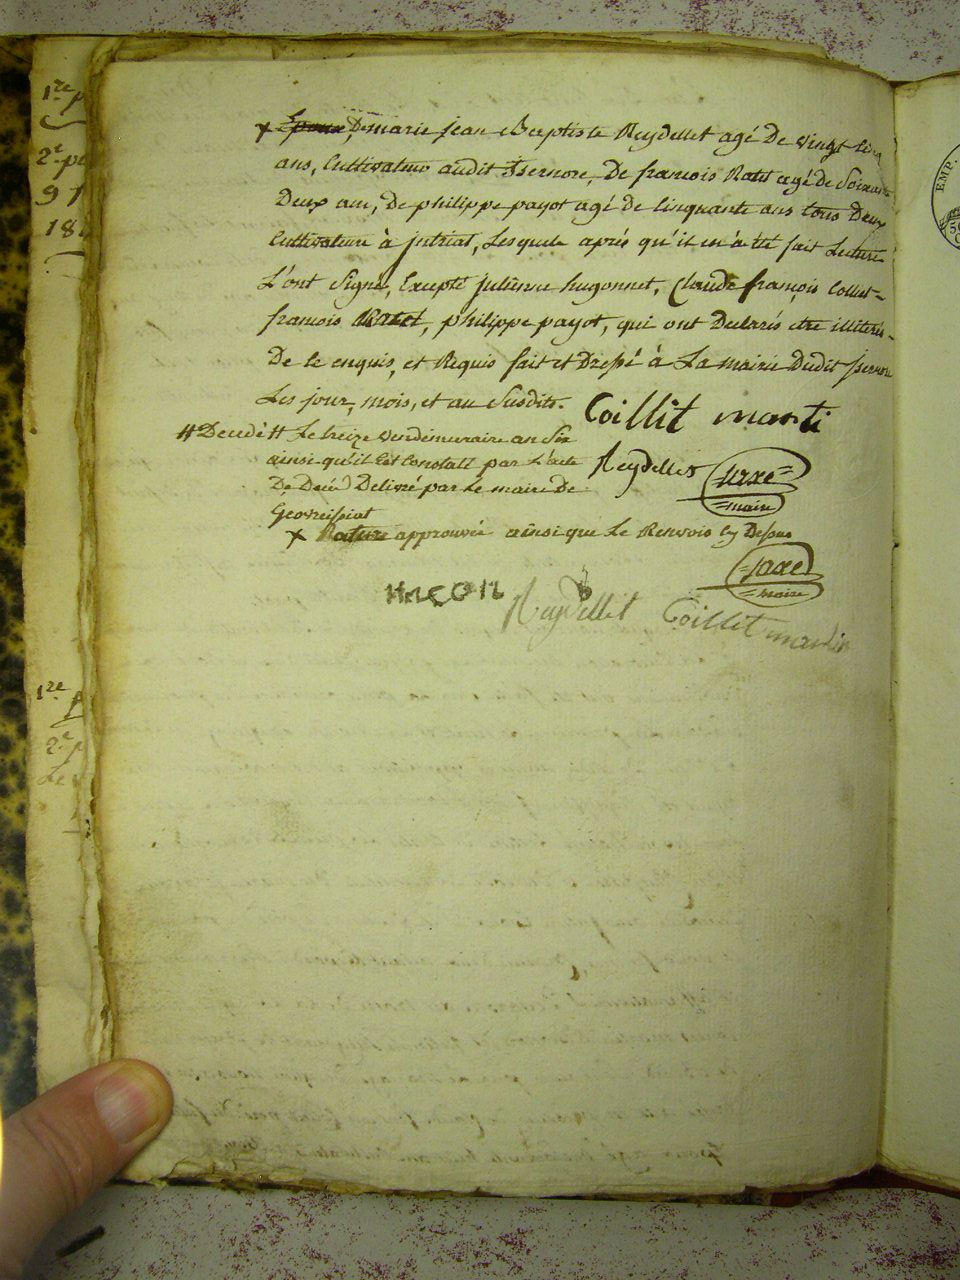 1re p
2e pu
91
18
x Epoux De marie jean Baptiste Reydellet agé De vingt cinq
ans, Cultivateur audit Isernore, De francois Ratet agé de Soixante
Deux ans, De philippe payot agé de Cinquante ans tous Deux
Cultivateurs à jntriat, Lesquels après qu'il en a été fait Lecture
L'ont Signé, Excepté julienne hugonnet, Claude françois Collet-
francois Ratet, philippe payot, qui ont Declarés etre illiterés
De ce enquis, et Requis fait et Dressé à La mairie Dudit Isernore
Les jour, mois, et an Susdits. Coillit marti
# Decedé # Le treize vendemiaire an Six
ainsi qu'il Est Constaté par L'acte Reydellet saxe
De Décé Delivré par Le maire De maire
Geovreissiat
x Rature approuvée ainsi que Le Renvois Cy Dessus
saxe
maire
Reydellet Coillit martin
1re p
2e p
Le
EMP.